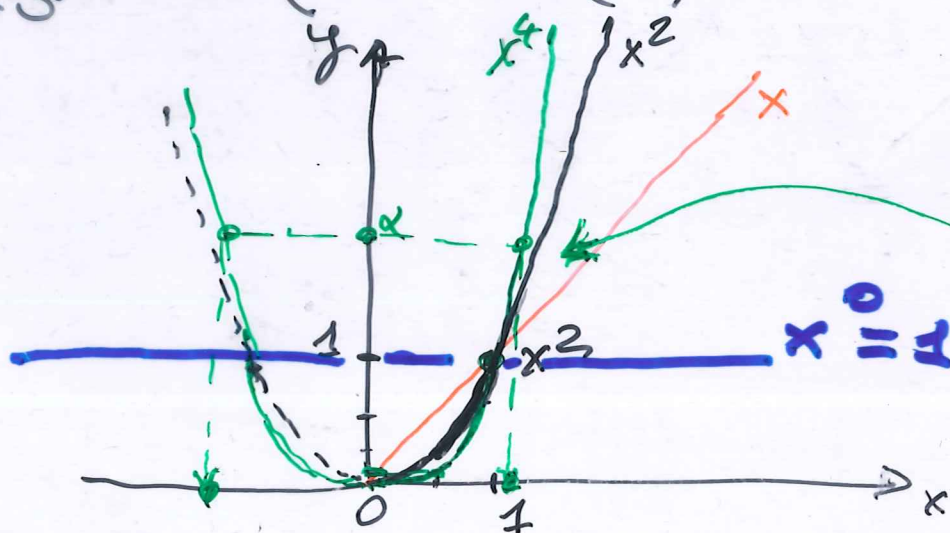 y
x⁴
x²
x
α
1
x²
x⁰=1
0
1
x